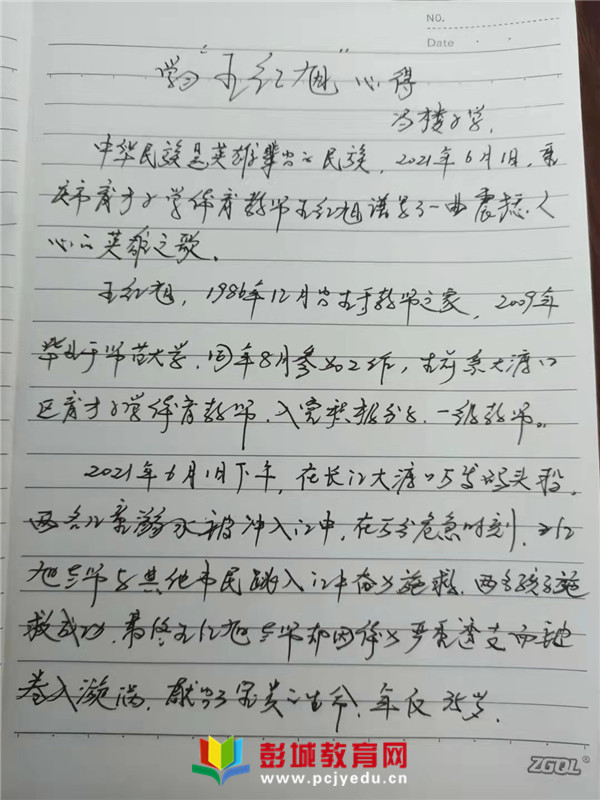 NO.
Date
学习"王红旭"心得
冯楼小学
中华民族是英雄辈出的民族，2021年6月1日，重
庆市育才小学体育教师王红旭谱写了一曲震撼人
心的英雄之歌。
王红旭，1986年12月出生于教师之家，2009年
毕业于师范大学，同年8月参加工作，生前系大渡口
区育才小学体育教师、入党积极分子、一级教师。
2021年6月1日下午，在长江大渡口万发码头段，
两名儿童溺水被冲入江中，在万分危急时刻，王红
旭老师与其他市民跳入江中奋力施救，两名孩子施
救成功，最终王红旭老师却因体力严重透支而被
卷入漩涡，献出了宝贵的生命，年仅35岁。
彭城教育网
www.pcjyedu.cn
ZGQL®